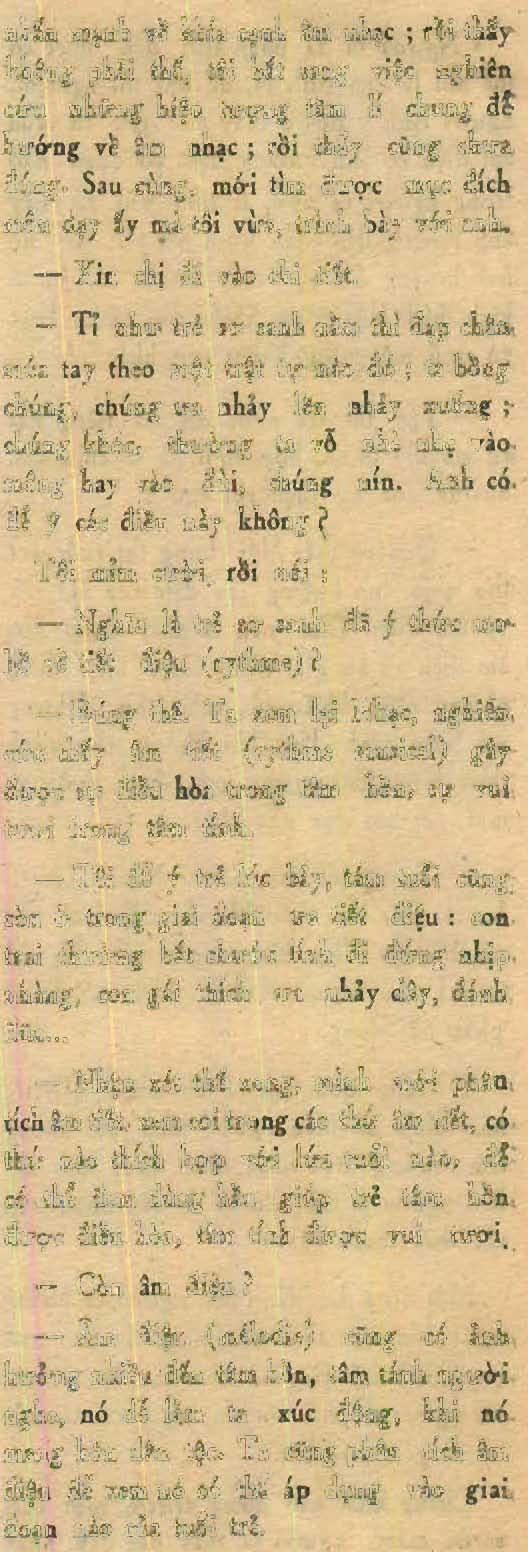 nhấn mạnh về khía cạnh âm nhạc ; rồi thấy
không phải thế, tôi bắt sang việc nghiên
cứu những hiện tượng tâm lí chung để
hướng về âm nhạc ; rồi thấy cũng chưa
đúng. Sau cùng, mới tìm được mục đích
môn dạy ấy mà tôi vừa trình bày với anh.
— Xin chị đi vào chi tiết.
— Tỉ như trẻ sơ sanh nằm thì đạp chân
múa tay theo một trật tự nào đó ; ta bồng
chúng, chúng ưa nhảy lên nhảy xuống ;
chúng khóc, thường ta vỗ nhè nhẹ vào
mông hay vào đùi, chúng nín. Anh có
để ý các điều này không ?
Tôi mỉm cười, rồi nói :
— Nghĩa là trẻ sơ sanh đã ý thức mơ
hồ về tiết điệu (rythme) ?
— Đúng thế. Ta xem lại Nhạc, nghiên
cứu thấy âm tiết (rythme musical) gây
được sự điều hòa trong tâm hồn, sự vui
tươi trong tâm tính.
— Tôi để ý trẻ lúc bảy, tám tuổi cũng
còn ở trong giai đoạn ưa tiết điệu : con
trai thường bắt chước lính đi đứng nhịp
nhàng, con gái thích ưa nhảy dây, đánh
đũa...
— Nhận xét thế xong, mình mới phân
tích âm tiết, xem coi trong các thứ âm tiết, có
thứ nào thích hợp với lứa tuổi nào, để
có thể đem dùng hầu giúp trẻ tâm hồn
được điều hòa, tâm tính được vui tươi.
— Còn âm điệu ?
— Âm điệu (mélodie) cũng có ảnh
hưởng nhiều đến tâm hồn, tâm tánh người
nghe, nó dễ làm ta xúc động, khi nó
mang hồn dân tộc. Ta cũng phân tích âm
điệu để xem nó có thể áp dụng vào giai
đoạn nào của tuổi trẻ.